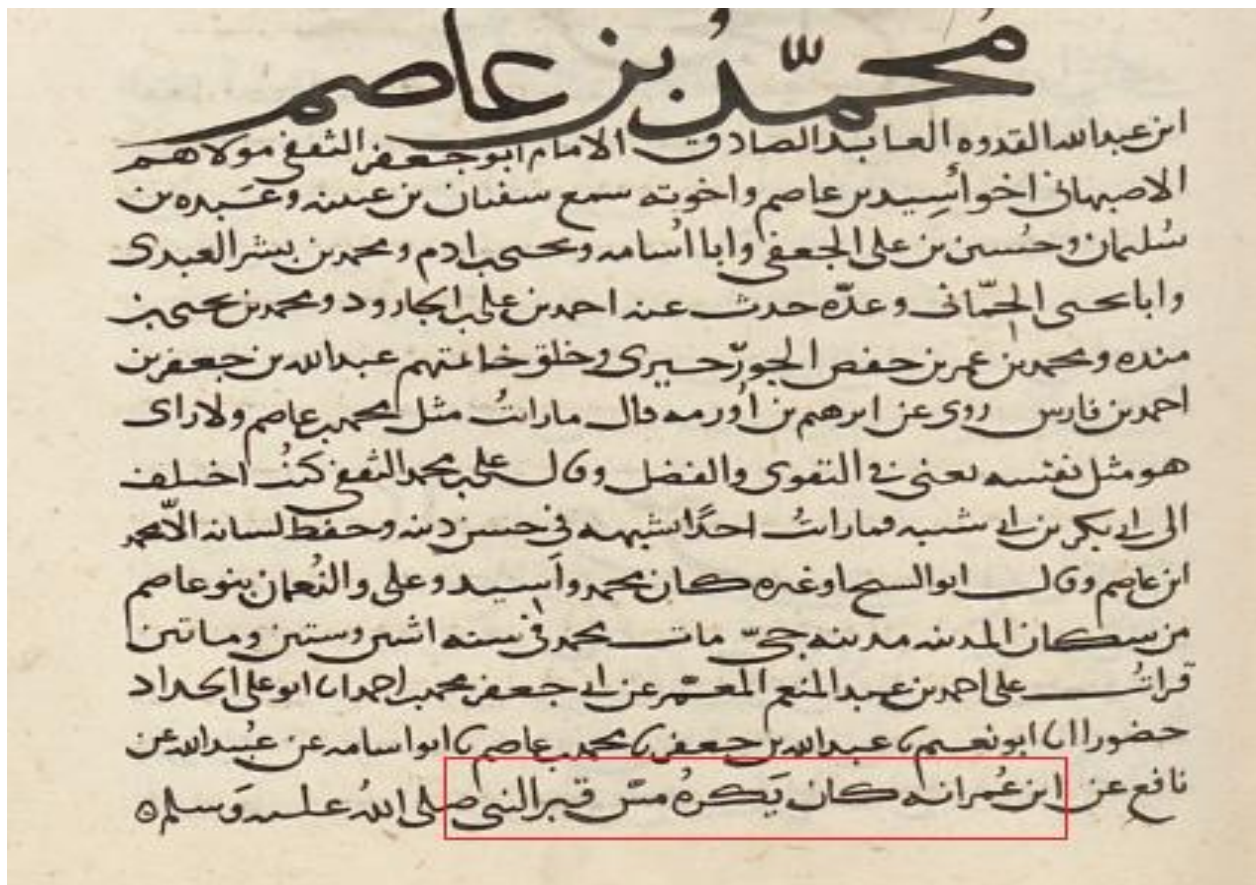 محمد بن عاصم
ابن عبدالله القدوه العابد الصادق الامام ابو جعفر الثقفي مولاهم
الاصبهاني اخو أسيد بن عاصم واخوته سمع سفيان بن عيينه وعَبده بن
سُليمان وحُسين بن علي الجعفي وابا اُسامه ويحيى بن ادم ومحمد بن بشر العبدي
وابا يحيى الحِمّاني وعدّه حدث عنه احمد بن علي بن الجارود ومحمد بن يحيى بن
منده ومحمد بن عمر بن حفص الجورجيري وخلق خاتمتهم عبدالله بن جعفر بن
احمد بن فارس روى عن ابرهيم بن اُورمه قال ما راتُ مثل محمد بن عاصم ولا راى
هو مثل نفسه يعني في التقوى والفضل وقال علي بن محمد الثقفي كنتُ اختلف
الى ابي بكر بن ابي شيبه فما راتُ احدًا يشبهه في حسن دينه وحفظ لسانه الّا محمد
ابن عاصم وقال ابو الشيخ او غيره كان محمد وأسيد وعلي والنُعمان بنو عاصم
من سكان المدينه مدينه جيّ مات محمد في سنه اثنتين وستين وماتين
قراتُ على احمد بن عبد المنعم المعمّر عن ابي جعفر محمد بن احمد انا ابو علي الحداد
حضورا انا ابو نعيم نا عبدالله بن جعفر نا محمد بن عاصم نا ابو اسامه عن عُبيدالله عن
نافع عن ابن عُمر انه كان يَكرهُ مسّ قبر النبي صلى اللهُ عليه وَسلم